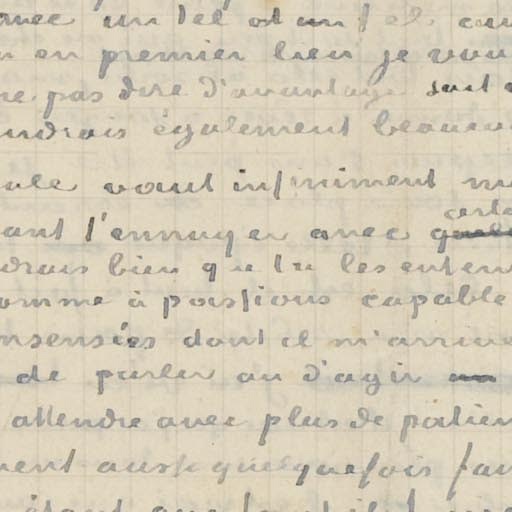 avec un tel et un tel
en premier lieu je vou
ne pas dire d'avantage soit
udrais également beaucou
vaut infiniment
certa
ant t'ennuyer avec
drais bien que tu les enten
omme à passions capable
nsensées dont il m'arrive
de parler ou d'agir
attendre avec plus de patien
ment aussi quelquefois fau
étant que